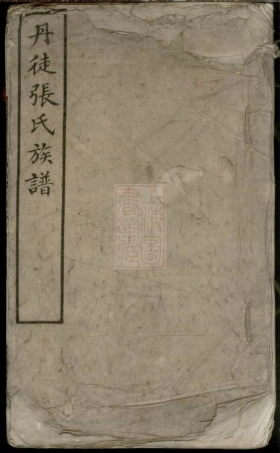 丹徒張氏族譜